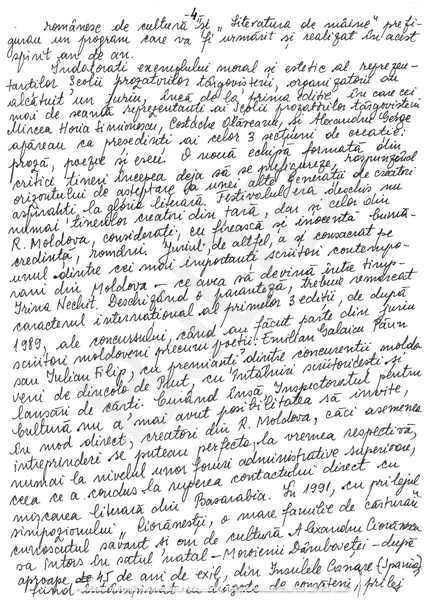 -4-
românesc de cultură și „Literatura de mâine” prefi-
gurau un program care va fi urmărit și realizat în acest
spirit an de an.
Îndatorați exemplului moral și estetic al reprezen-
tanților Școlii prozatorilor târgovișteni, organizatorii au
alcătuit un juriu, încă de la prima ediție, în care cei
mai de seamă reprezentanți ai Școlii prozatorilor târgovișteni
Mircea Horia Simionescu, Costache Olăreanu, și Alexandru George
apăreau ca președinți ai celor 3 secțiuni de creație:
proză, poezie și eseu. O nouă echipă formată din
critici tineri începea deja să se prefigureze, răspunzând
orizontului de așteptare al unei alte generații de creatori
aspiranți la gloria literară. Festivalul era deschis nu
numai tinerilor creatori din țară, dar și celor din
R. Moldova, considerați, cu firească și inocentă bună-
credință, români. Juriul de altfel, a și consacrat pe
unul dintre cei mai importanți scriitori contempo-
rani din Moldova – ce avea să devină între timp –
Irina Nechit. Deschizând o paranteză, trebuie remarcat
caracterul internațional al primelor 3 ediții, de după
1989, ale concursului, când au făcut parte din juriu
scriitori moldoveni precum poeții: Emilian Galaicu Păun
sau Iulian Filip, cu premianți dintre concurenții moldo-
veni de dincolo de Prut, cu întâlniri scriitoricești și
lansări de cărți. Curând însă, Inspectoratul pentru
Cultură nu a mai avut posibilitatea să invite,
în mod direct, creatori din R. Moldova, căci asemenea
întreprinderi se puteau perfecta, la vremea respectivă,
numai la nivelul unor foruri administrative superioare,
ceea ce a condus la ruperea contactului direct cu
mișcarea literară din Basarabia. În 1991, cu prilejul
simpozionului „Ciorăneștii, o mare familie de cărturari”
cunoscutul savant și om de cultură Alexandru Ciorănescu
va întors în satul natal – Moroieni Dâmboviței – după
aproape 45 de ani de exil, din Insulele Canare (Spania),
fiind întâmpinat cu dragoste de consăteni, prilej